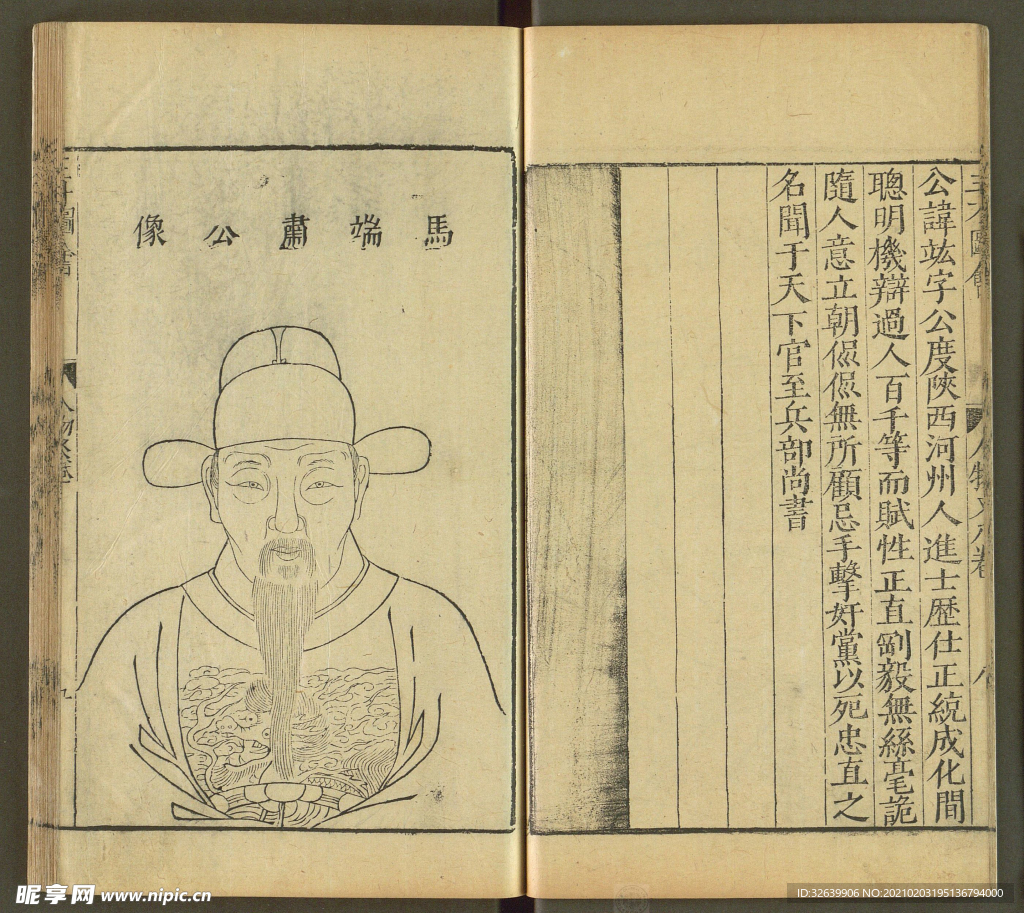 公諱竑字公度陝西河州人進士歷仕正統成化間
聰明機辯過人百千等而賦性正直剛毅無絲毫詭
隨人意立朝侃侃無所顧忌手擊奸黨以死忠直之
名聞于天下官至兵部尚書
馬端肅公像
昵享网 www.nipic.cn
ID:32639906 NO:20210203195136794000